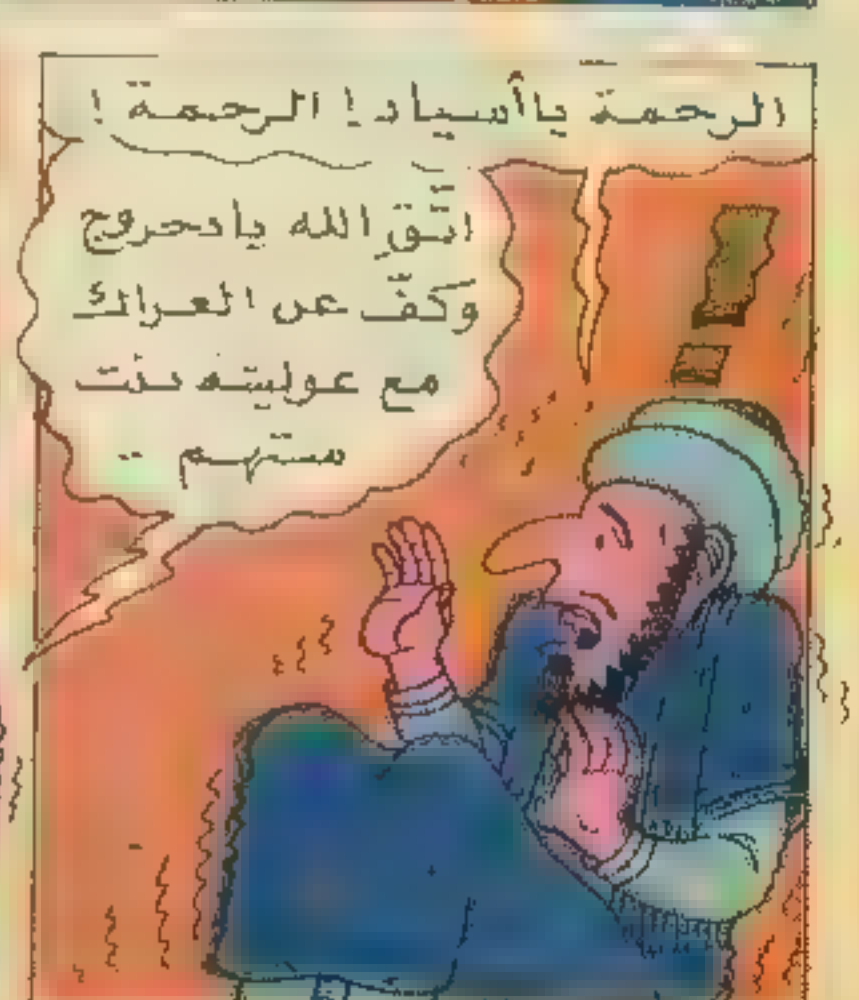 الرحمة ياأسياد! الرحمة!
اتّقِ الله يادحروج
وَكفّ عن العراك
مع عوليته بنت
ستهم ..